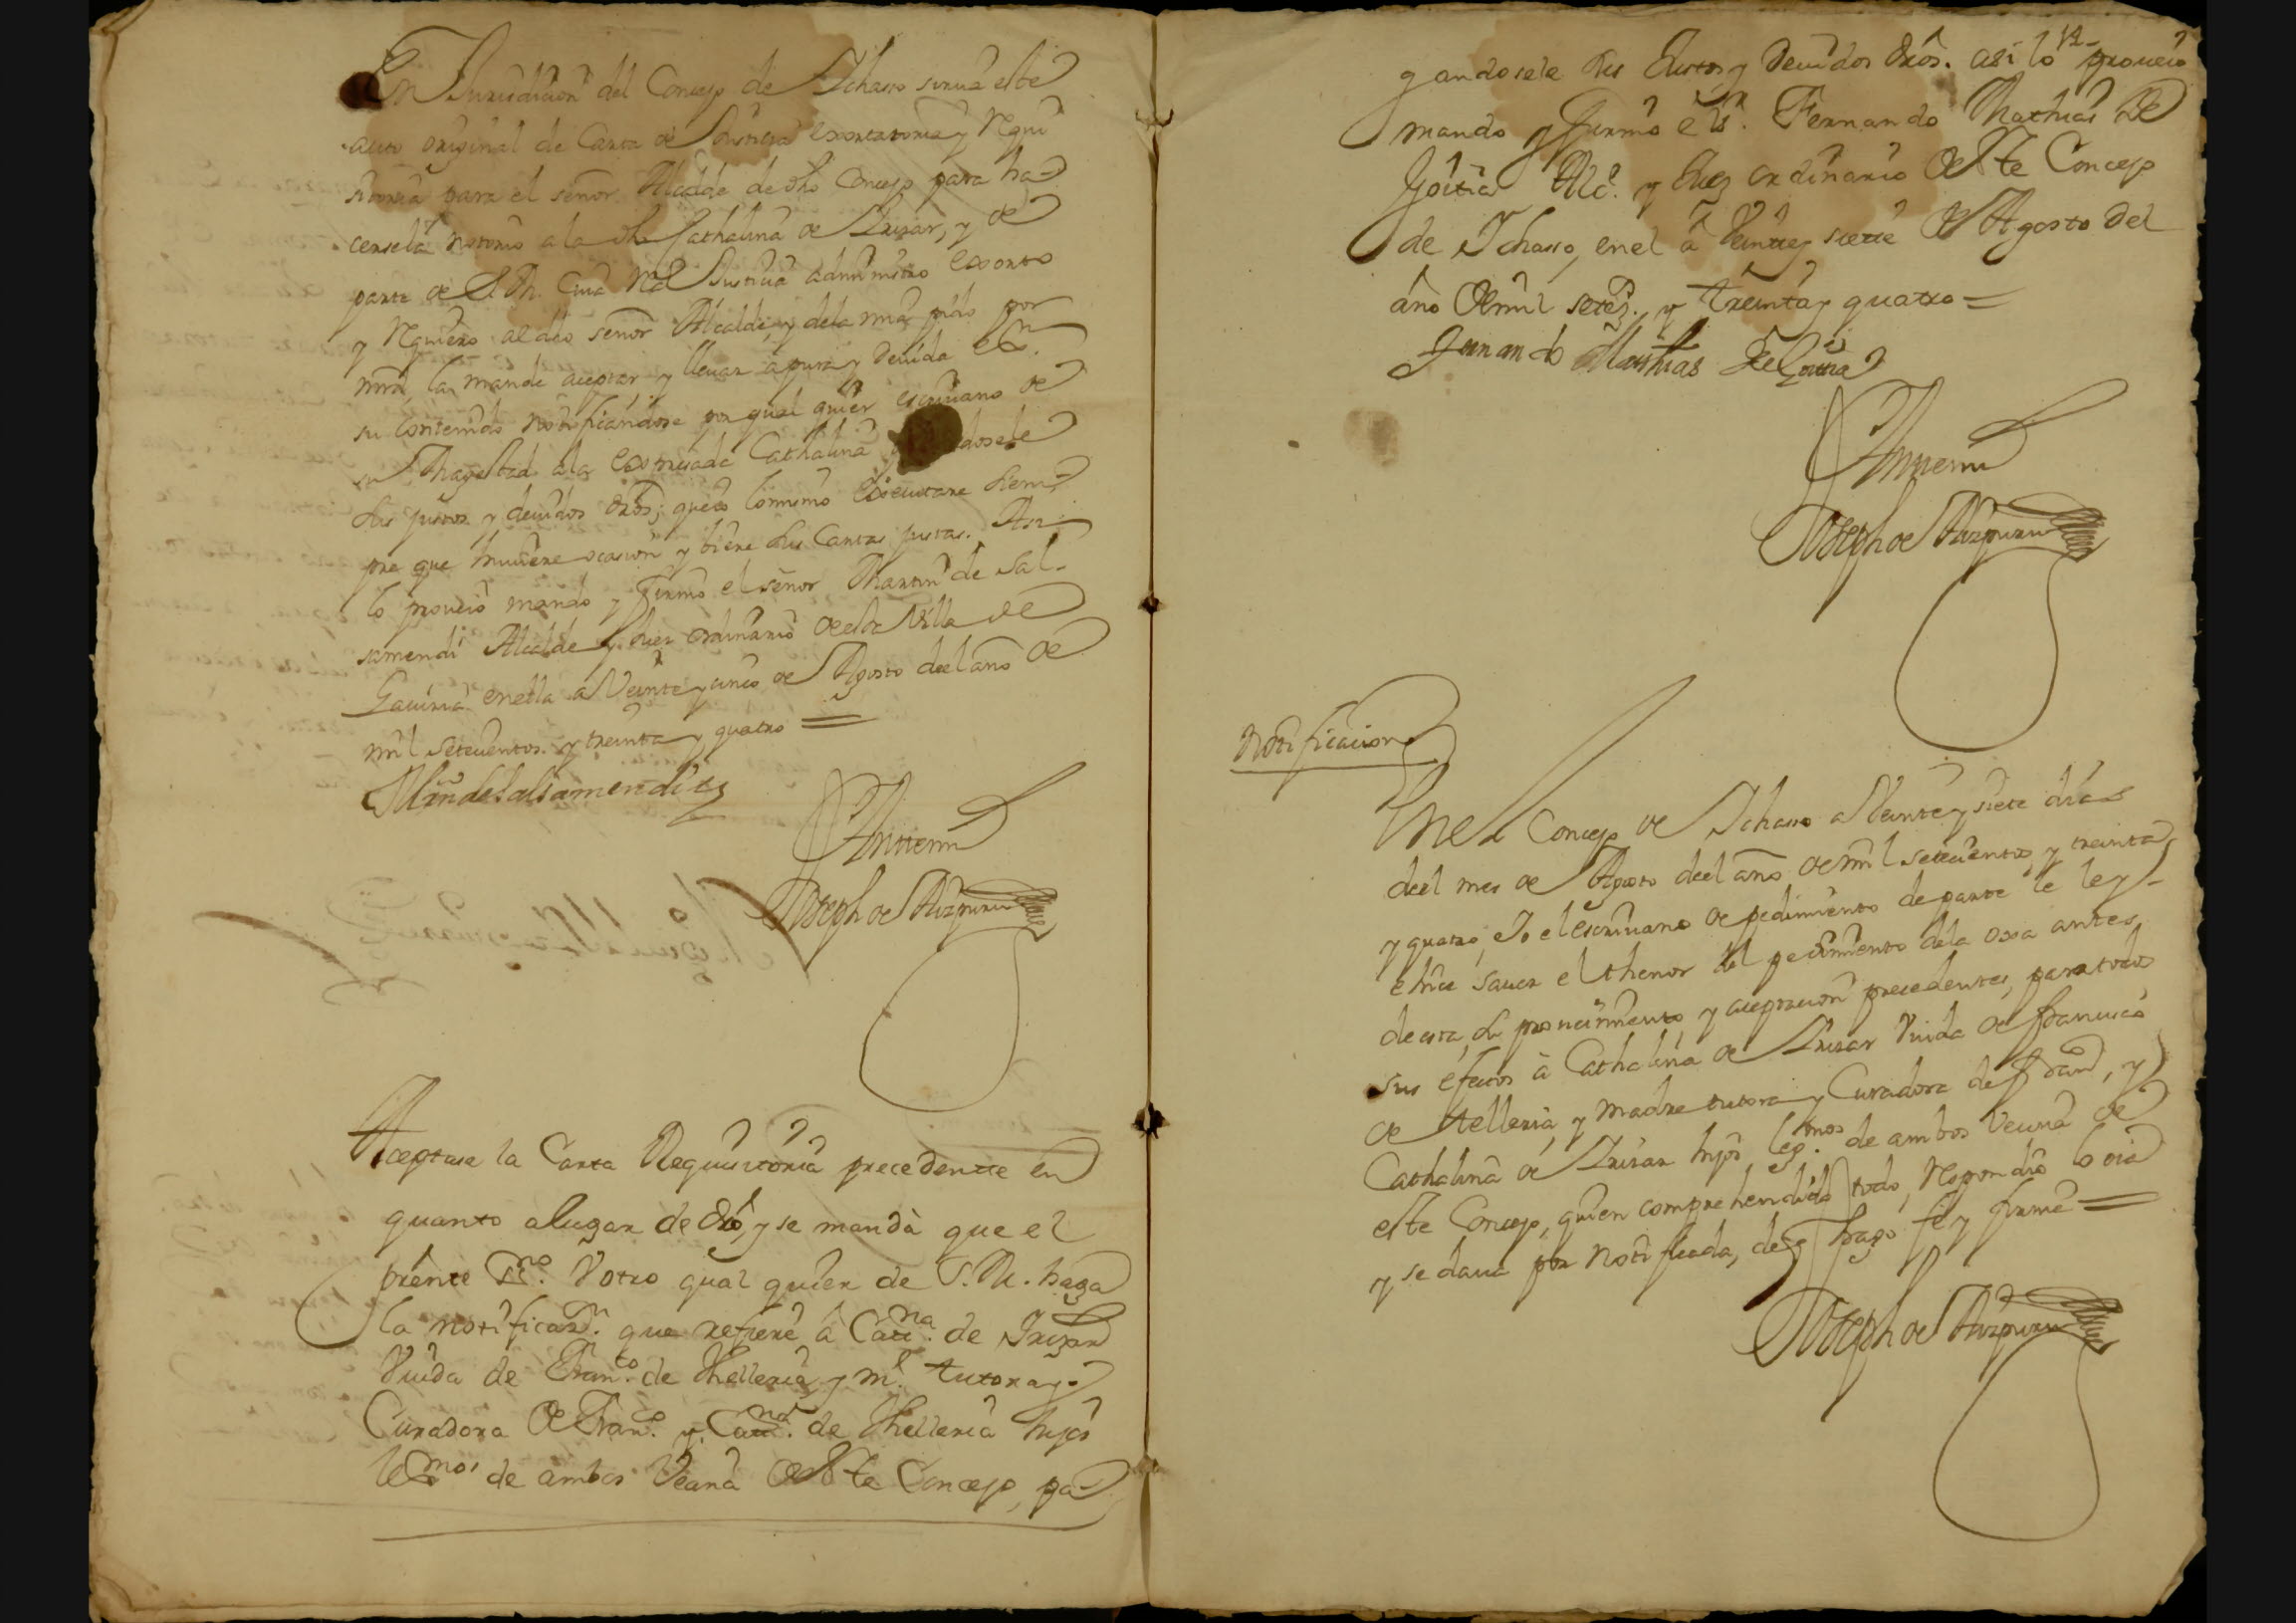 En Jurisdicion del Concejo de Ichasso sirua este
auto original de Carta de Justicia exortatoria y Requi
sitoria para el señor Alcalde de dho Concejo para ha-
cersela notorio a la dha Cathalina de Irizar, y de
parte de S. M. Cuia Rl Justicia administro exorto
y Requiero al dho señor Alcalde, y dela mia pido por
mrd, la mande aceptar, y lleuar a pura y deuida exon.
su contenido notificandose por qual quier escriuano de
su Magestad a la expresada Cathalina dosele
sus justos y deuidos dros; que lo mismo executare siem-
pre que huuiere ocasion y biere sus Cartas justas. Assi
lo proueio mando y firmo el señor Martin de Sal-
samendi Alcalde y Juez ordinario de esta Villa de
Gauiria en ella a Veinte y cinco de Agosto del año de
mil setecientos y treinta y quatro =
Mrn de Salsamendi
Antemi
Joseph de Aizpuru
Aceptase la Carta Requisitoria precedentte en
quanto a lugar de dro, y se manda que el
preñte Sno. V otro qual quier de S. M. haga
la notificazn. que refiere à Cattna. de Irizar
Viuda de Franco. de Thelleria y me. tutora y
Curadora de Franco. y Cattna. de Thelleria hijos
lexmos de ambos Vecina deste Concejo, pa-
gandosele sus Justos y deuidos dros. asi lo proueio
mando y firmo el Sr. Fernando Mathias de
Goitia Alce. y Juez ordinario deste Concejo
de Ichasso, en el à Veintte y siette de Agosto del
año de mil setezs. y treinta y quatro =
Fernando Mathias de Goitia
Antemi
Joseph de Aizpuru
Notificacion
En el Concejo de Ichasso a Veinte y siete dias
del mes de Agosto del año de mil setecientos y treinta
y quatro, Yo el escriuano de pedimiento de parte le ley-
e hice sauer el thenor del pedimiento dela oxa antes
de esta, su proueimiento, y aceptacion precedentes, para todos
sus efectos à Cathalina de Irizar Viuda de Francisco
de Telleria, y madre tutora y Curadora de Franco, y
Cathalina de Irizar hijos legmos. de ambos Vecina de
este Concejo, quien comprehendido todo, Respondio lo oia
y se daua por notificada, de q hago fe y firme =
Joseph de Aizpuru